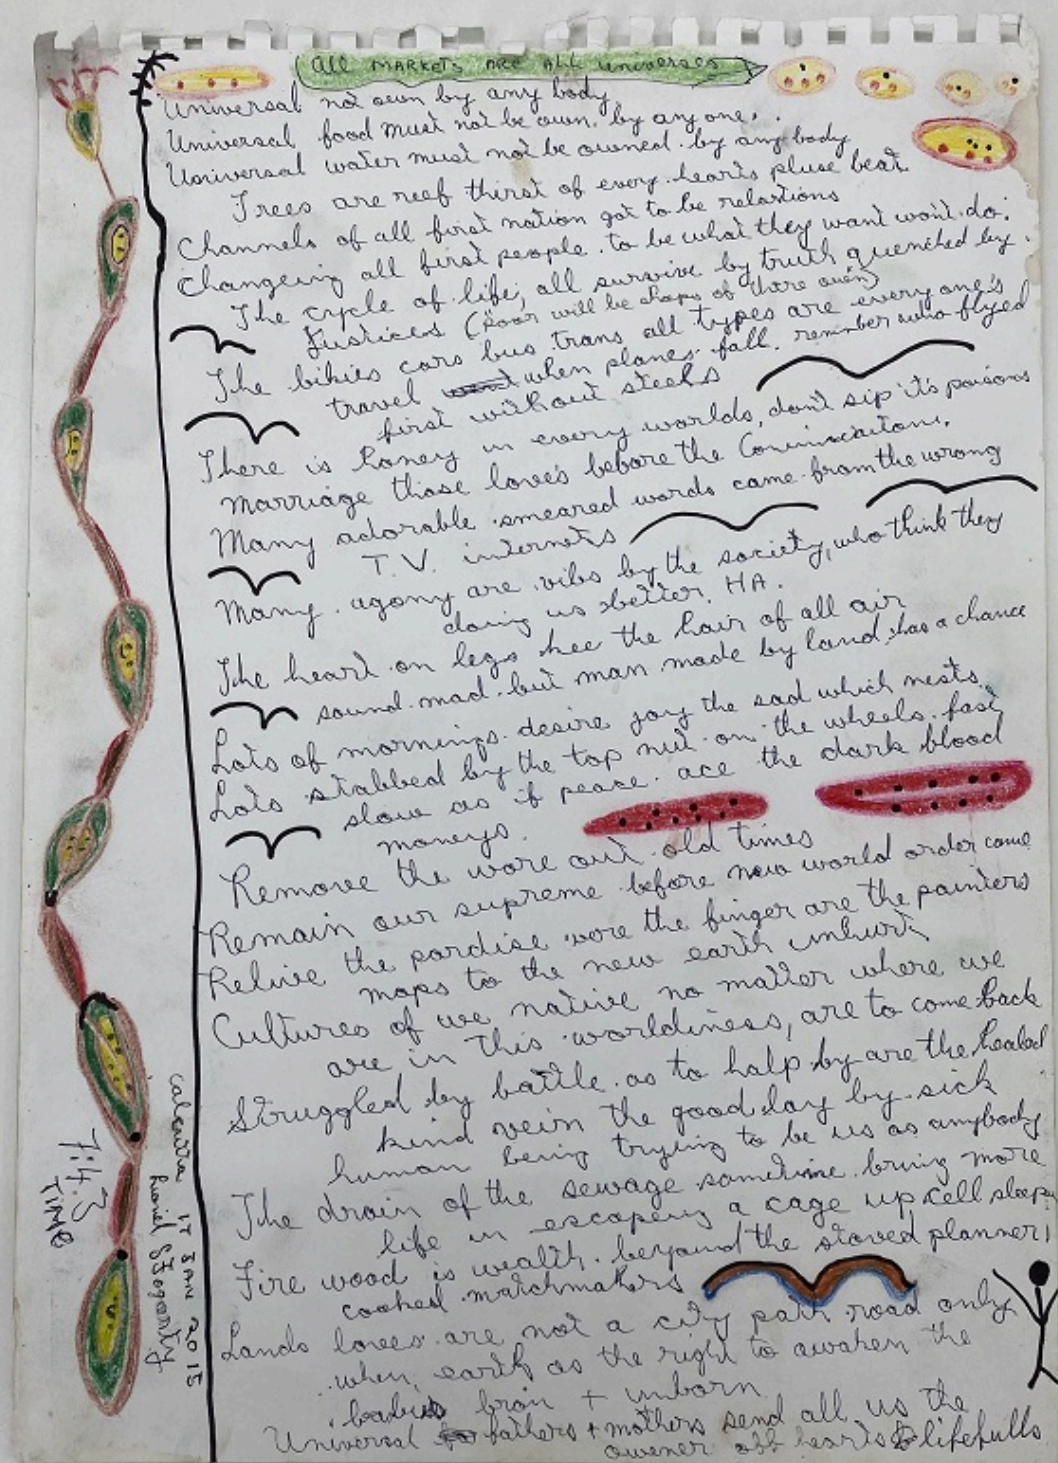 All MARKETS ARE All universes
Universal not own by any body
Universal food must not be own. by any one.
Universal water must not be owned. by any body
Trees are reef thirst of every hearts pluse beat
Channels of all first nation got to be relastions
Changeing all first people to be what they want wont do.
The cycle of life, all survive by truth quenched by.
Justices (Poor will be chops of there oven)
The bikies cars bus trans all types are every one's
travel when planes fall, remember who flyed
first without steels
There is honey in every worlds, dont sip it's poisons
Marriage those loves before the
Many adorable smeared words came from the wrong
T.V. internets
Many agony are vibs by the society, who think they
doing us better. HA.
The heart on legs hee the hair of all air
sound mad but man made by land, has a chance
Lots of mornings desire joy the sad which nests
Lots stabbed by the top nut on the wheels fast
slow as if peace ace the dark blood
moneys.
Remove the wore out old times
Remain our supreme before new world order come
Relive the pardise wore the finger are the painters
maps to the new earth unhurt
Cultures of we native no matter where we
are in this worldiness, are to come back
Struggled by battle as to halp by are the healed
kind vein the good lay by sick
human being trying to be us as anybody
The drain of the sewage sometime bring more
life in escapeing a cage up cell sleepy
Fire wood is wealth beyand the stoved planner
cooked matchmakers
Lands loves are not a city park road only
when earth as the right to awaken the
brain + unborn
Universal fathers + mothers send all us the
owener off hearts lifefulls
7:43
TIME
calcutta 17 JAN 2015
Lionel G Fogarty